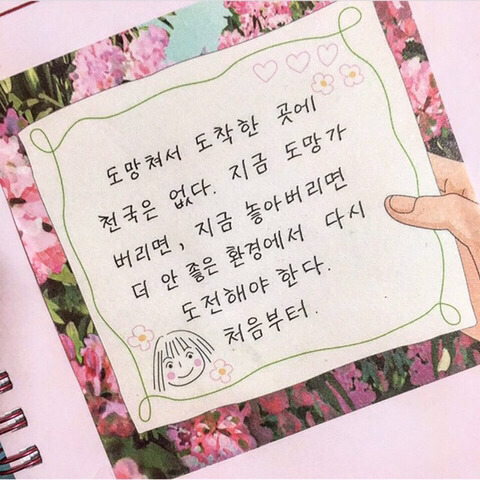 도망쳐서 도착한 곳에
천국은 없다. 지금 도망가
버리면, 지금 놓아버리면
더 안 좋은 환경에서 다시
도전해야 한다.
처음부터.